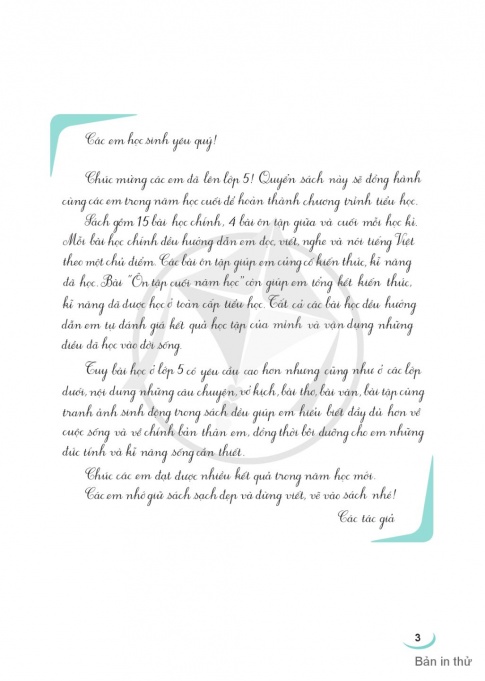 Các em học sinh yêu quý!
Chúc mừng các em đã lên lớp 5! Quyển sách này sẽ đồng hành
cùng các em trong năm học cuối để hoàn thành chương trình tiểu học.
Sách gồm 15 bài học chính, 4 bài ôn tập giữa và cuối mỗi học kì.
Mỗi bài học chính đều hướng dẫn em đọc, viết, nghe và nói tiếng Việt
theo một chủ điểm. Các bài ôn tập giúp em củng cố kiến thức, kĩ năng
đã học. Bài "Ôn tập cuối năm học" còn giúp em tổng kết kiến thức,
kĩ năng đã được học ở toàn cấp tiểu học. Tất cả các bài học đều hướng
dẫn em tự đánh giá kết quả học tập của mình và vận dụng những
điều đã học vào đời sống.
Tuy bài học ở lớp 5 có yêu cầu cao hơn nhưng cũng như ở các lớp
dưới, nội dung những câu chuyện, vở kịch, bài thơ, bài văn, bài tập cùng
tranh ảnh sinh động trong sách đều giúp em hiểu biết đầy đủ hơn về
cuộc sống và về chính bản thân em, đồng thời bồi dưỡng cho em những
đức tính và kĩ năng sống cần thiết.
Chúc các em đạt được nhiều kết quả trong năm học mới.
Các em nhớ giữ sách sạch đẹp và đừng viết, vẽ vào sách nhé!
Các tác giả
3
Bản in thử